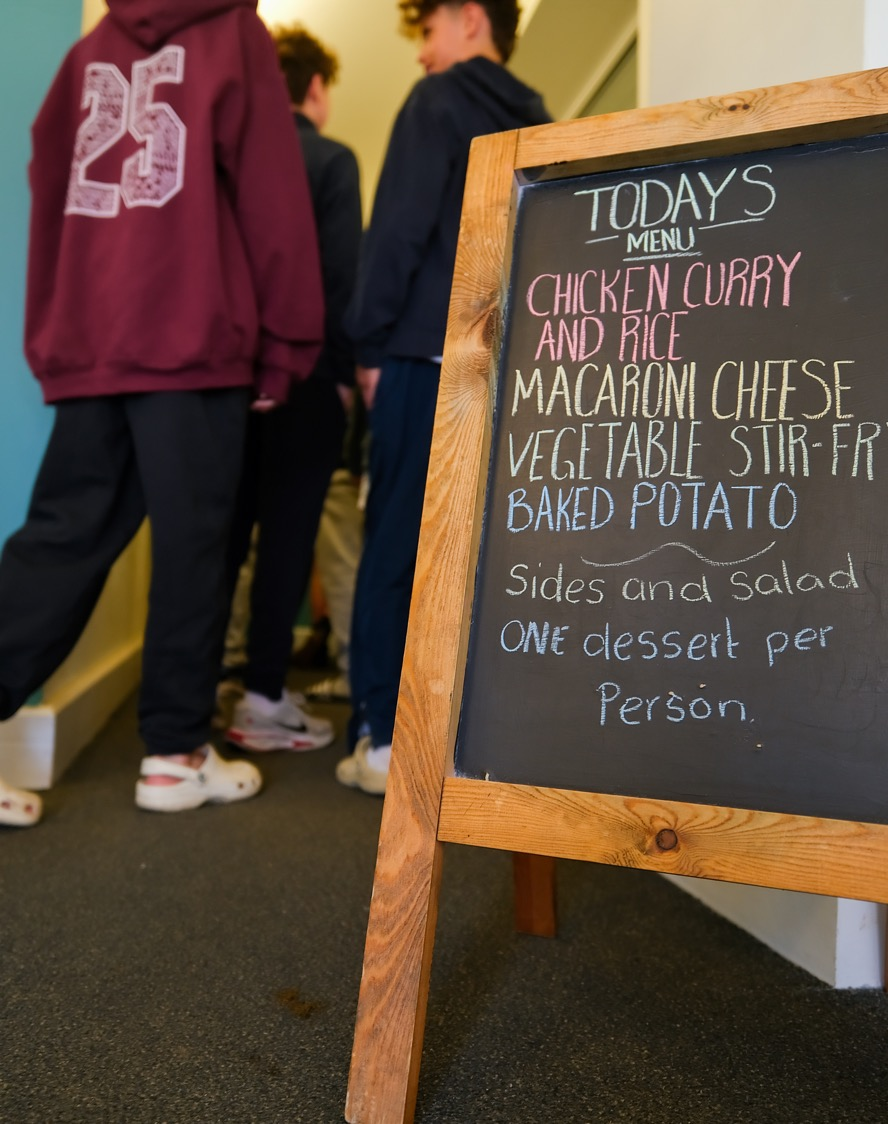 25
TODAYS
MENU
CHICKEN CURRY
AND RICE
MACARONI CHEESE
VEGETABLE STIR-FRY
BAKED POTATO
Sides and salad
ONE dessert per
Person.